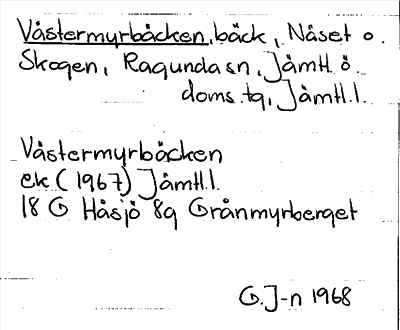 Västermyrbäcken, bäck, Näset o.
Skogen, Ragunda sn, Jämtl. ö.
doms. tg, Jämtl. l.
Västermyrbäcken
ek (1967) Jämtl. l.
18 G Håsjö 8g Grånmyrberget
G. J-n 1968